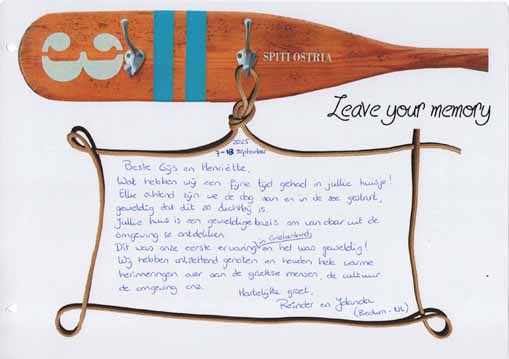 3
SPITI OSTRIA
Leave your memory
2025
7-18 september
Beste Gijs en Henriëtte,
Wat hebben wij een fijne tijd gehad in jullie huisje!
Elke ochtend zijn we de dag aan en in de zee gestart,
geweldig dat dit zo dichtbij is.
Jullie huis is een geweldige basis om van daar uit de
omgeving te ontdekken.
in Griekenland
Dit was onze eerste ervaring en het was geweldig!
Wij hebben ontzettend genoten en houden hele warme
herinneringen over aan de griekse mensen, de cultuur
de omgeving enz.
Hartelijke groet,
Reinder en Jolanda
(Bedum - NL)